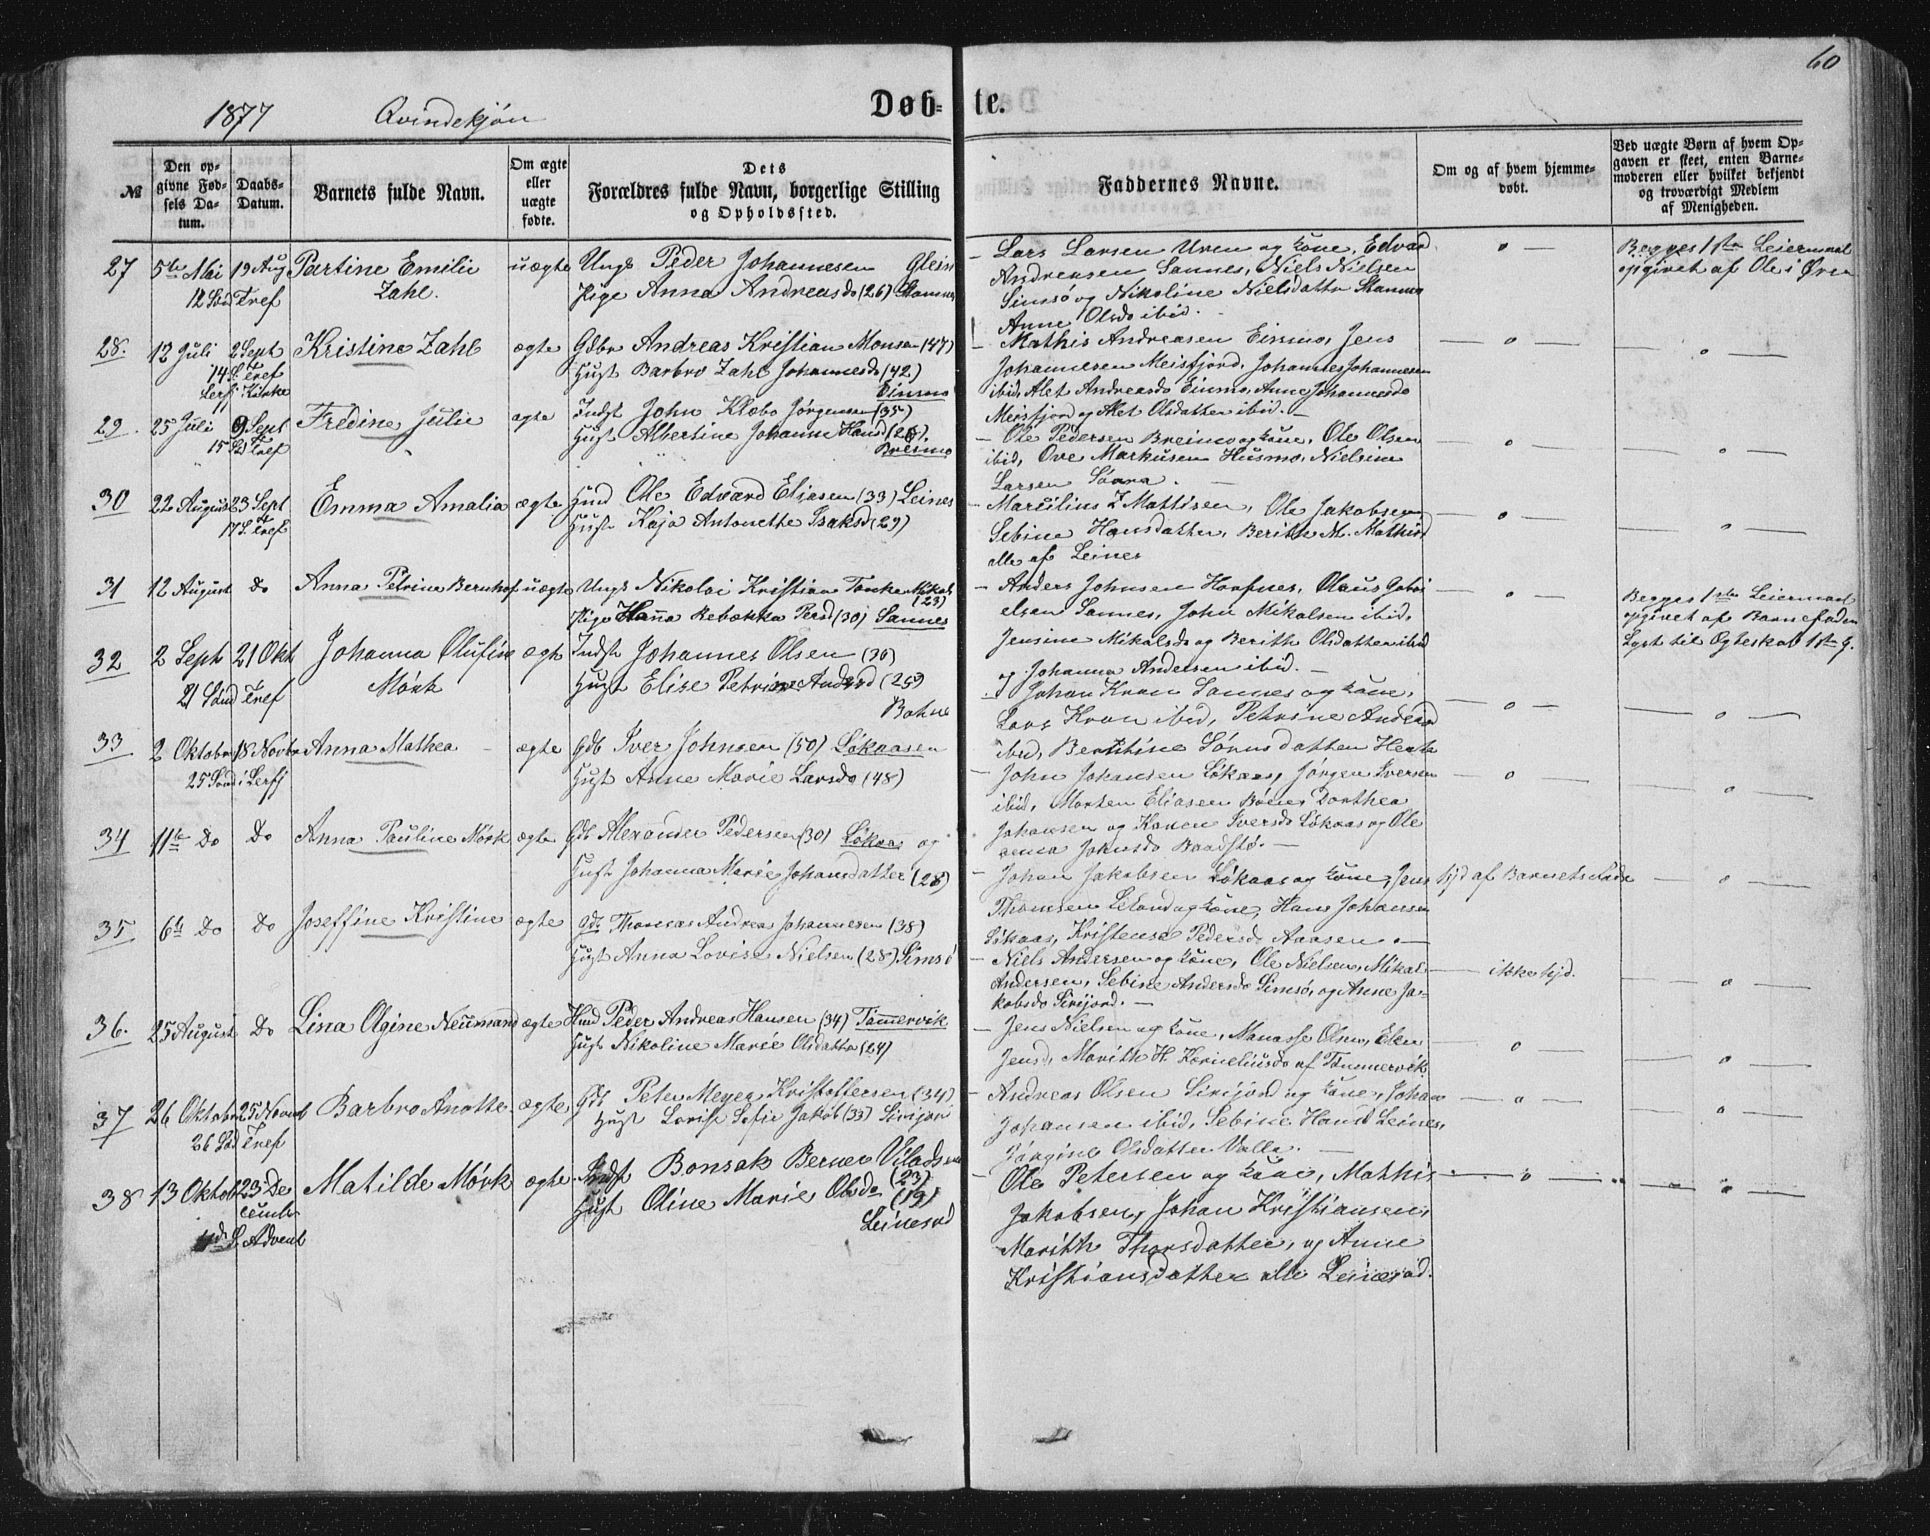 60
1877 Qvindekjøn Døb- te.
№
Den op-
givne Fød-
sels Da-
tum.
Daabs-
Datum.
Barnets fulde Navn.
Om ægte
eller
uægte
fødte.
Dets
Forældres fulde Navn, borgerlige Stilling
og Opholdssted.
Faddernes Navne.
Om og af hvem hjemme-
døbt.
Ved uægte Børn af hvem Op-
gaven er skeet, enten Barne-
moderen eller hvilket bekjendt
og troværdigt Medlem
af Menigheden.
27 5te Mai 19 Aug Partine Emilie uægte Ungk Peder Johannesen Glein
12 Sød Tref Zahl. Pige Anna Andreasd (26)
Lars Larsen Uren og Kone, Edvard
Andreasen Sannes, Niels Nielsen
Simsø og Nikoline Nielsdatter
Anne Olsd ibid.
o
Begges 1ste Leiermaal
opgivet af Ole i Øren
28. 12 Juli 2 Sept Kristine Zahl ægte Gdbr Andreas Kristian Monsen (47)
14 S. Tref Hust Barbro Zahl Johannesd (42)
Lerfj Kirke Einmo
Mathis Andreasen Einmo, Jens
Johannesen Meisfjord, Johannes Johannesen
ibid, Alet Andreasd Einmo, Anne Johannesd
Meisfjord og Alet Olsdatter ibid.
o o
29. 25 Juli 9 Sept Fredine Julie ægte Indst John Klæbo Jørgensen (35)
15 Sd Tref Hust Albertine Johanne Hansd (26).
Breimo
Ole Pedersen Breimo og Kone, Ole Olsen
ibid, Ove Markusen Husmo, Nielsine
Larsen Søvra.
o o
30 22 August 23 Sept Emma Amalia ægte Hmd Ole Edvard Eliasen (33) Leines
17 S. Tref Hust Kaja Antonette Isaksd (29)
Marcilius Z Mathisen, Ole Jakobsen
Sebine Hansdatter, Berith M. Mathisd
alle af Leines
o o
31 12 August Do Anna Petrine Bernhof uægte Ungk Nikolai Kristian
(23)
Pige Hanna Rebækka Persd (30) Sannes
Anders Johnsen Hoofnes, Olaus Gabri
elsen Sannes, John Mikalsen ibid,
Jensine Mikalsd og Berith Olsdatter ibid
og Johanna Andersen ibid.
o
Begges 1ste Leiermaal
opgivet af Barnefaderen
Lyst til Ægteskab 1ste G.
32 2 Sept 21 Okt Johanna Olufine ægte Indst Johannes Olsen (36)
21 Sønd Tref Mørk Hust Elise Petrine Andersd (25)
Johan Kron Sannes og Kone,
Lars Kron ibid, Petrine Andersd
ibid, Berthine Sørensdatter
o o
33 2 Oktober 18 Novbr Anna Mathea ægte Gdb Iver Johnsen (50) Løkaasen
25 Sønd i Lerfj Hust Anne Marie Larsd (48)
John Johansen Løkaas, Jørgen Iversen
ibid, Morten Eliasen Bønes, Dorthea
Johansen og Karen Iversd Løkaas og Ole
o o
34 11te Do Do Anna Pauline Mørk ægte Gdb Alexander Pedersen (30) Løkaas og
Hust Johanna Marie Johansdatter (28)
Johan Jakobsen Løkaas og Kone, Jens
Thomsen Leland og Kone, Hans Johansen
Løkaas, Kristense Pedersd Aaasen.
hjd af Barnets Fader
o
35 6te Do Do Joseffine Kristine ægte Gdb. Thomas Andreas Johannesen (38)
Hust Anna Lovise Nielsen (28) Simsø
Niels Andersen og Kone, Ole Nielsen, Mikal
Andersen, Sebine Andersd Simsø, og Anne Ja-
kobsd Sirijord.
ikke hjd.
o
36. 25 August Do Lina Olgine Neümand ægte Hmd Peder Andreas Hansen (34) Tømmervik
Hust Nikoline Marie Olsdatter (24)
Jens Nielsen og Kone, Manasse Olsen, Elen
Jensd, Marith H. Korneliusd af Tømmervik
o o
37 26 Oktober 25 Novemb Barbro Anotte ægte Gdb Peter Meyer Kristoffersen (34)
26 Sød Tref Hust Lovise Sofie Jakob (33) Sirijord
Andreas Olsen Sirijord og Kone, Johan
Johansen ibid, Sebine Hansd Leines,
Jørgine Olsdatter Valla.
o o
38 13 Oktob 23 De Matilde Mørk ægte Indst Bonsak Berner Viladsen
cember (23)
4de S. Advent Hust Oline Marie Olsd (19)
Leinesod
Ole Petersen og Kone, Mathis
Jakobsen, Johan Kristiansen,
Marith Thorsdatter, og Anne
Kristiansdatter alle Leinesod.
o o